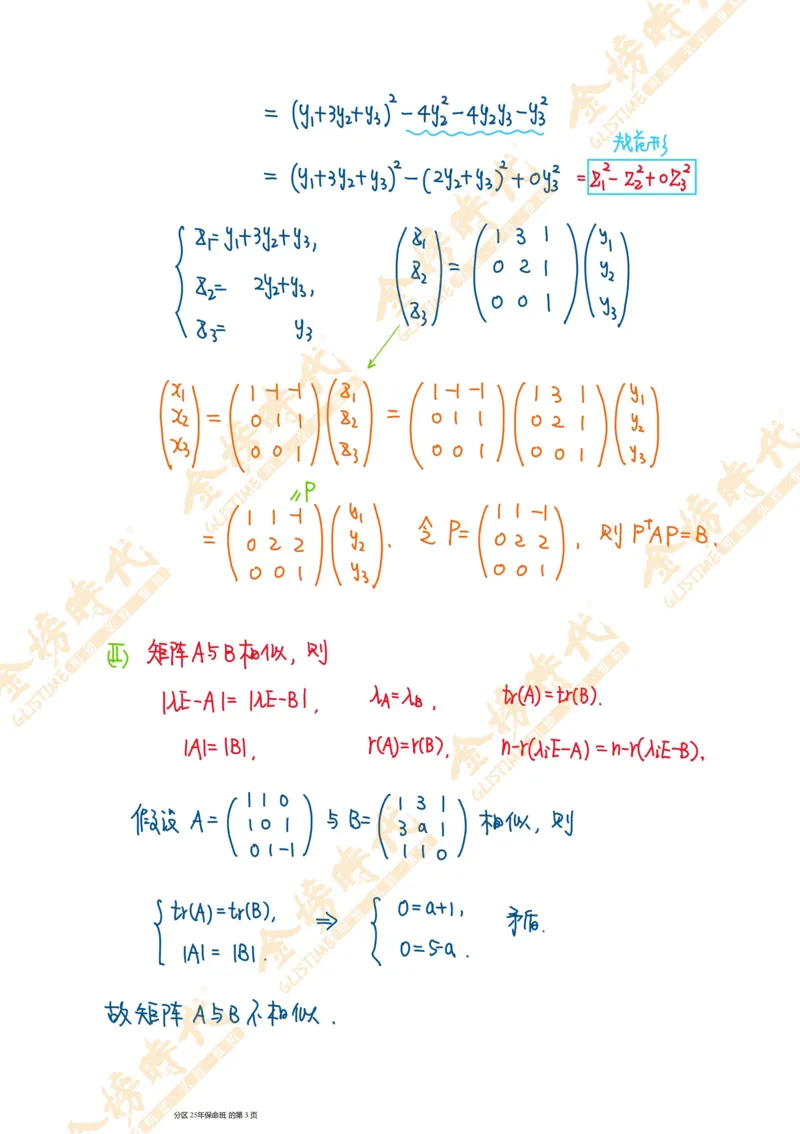 = (y₁+3y₂+y₃)²-4y₂²-4y₂y₃-y₃²
规范形
= (y₁+3y₂+y₃)²-(2y₂+y₃)²+0y₃² = z₁²-z₂²+0z₃²
{ z₁=y₁+3y₂+y₃, z₂= 2y₂+y₃, z₃= y₃ (z₁ z₂ z₃) = (1 3 1; 0 2 1; 0 0 1) (y₁ y₂ y₃)
(x₁ x₂ x₃) = (1 -1 -1; 0 1 1; 0 0 1) (z₁ z₂ z₃) = (1 -1 -1; 0 1 1; 0 0 1) (1 3 1; 0 2 1; 0 0 1) (y₁ y₂ y₃)
=P
= (1 1 -1; 0 2 2; 0 0 1) (y₁ y₂ y₃). 令 P= (1 1 -1; 0 2 2; 0 0 1), 则 PᵀAP=B.
(Ⅲ) 矩阵A与B相似, 则
|λE-A|= |λE-B|, λ_A=λ_B, tr(A)=tr(B).
|A|=|B|, r(A)=r(B), n-r(λᵢE-A)=n-r(λᵢE-B),
假设 A= (1 1 0; 1 0 1; 0 1 -1) 与 B= (1 3 1; 3 a 1; 1 1 0) 相似, 则
{ tr(A)=tr(B), |A|= |B|. ⇒ { 0=a+1, 0=5-a. 矛盾.
故矩阵 A与B不相似.
分区 25年保命班 的第 3 页
金榜時代
GLISTIME